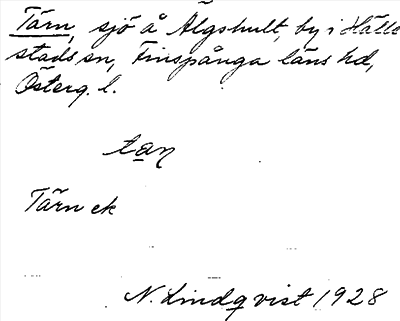 Tärn, sjö å Älgshult, by i Hälle
stads sn, Finspånga läns hd,
Österg. l.
tạn
Tärn ek
N. Lindqvist 1928